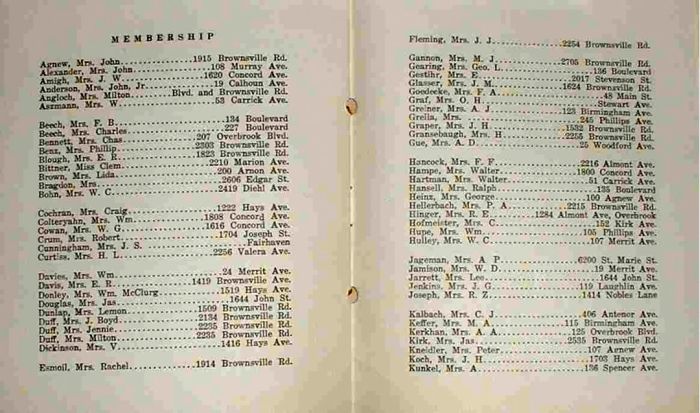 MEMBERSHIP
Agnew, Mrs. John 1915 Brownsville Rd.
Alexander, Mrs. John 108 Murray Ave.
Amigh, Mrs. J. W. 1620 Concord Ave.
Anderson, Mrs. John, Jr. 19 Calhoun Ave.
Angloch, Mrs. Milton Blvd. and Brownsville Rd.
Assmann, Mrs. W. 53 Carrick Ave.
Beech, Mrs. F. B. 134 Boulevard
Beech, Mrs. Charles 227 Boulevard
Bennett, Mrs. Chas. 207 Overbrook Blvd.
Benz, Mrs. Phillip 2303 Brownsville Rd.
Blough, Mrs. E. R. 1823 Brownsville Rd.
Bittner, Miss Clem 2210 Marion Ave.
Brown, Mrs. Lida 200 Amon Ave.
Bragdon, Mrs. 2606 Edgar St.
Bohn, Mrs. W. C. 2419 Diehl Ave.
Cochran, Mrs. Craig 1222 Hays Ave.
Colteryahn, Mrs. Wm. 1808 Concord Ave.
Cowan, Mrs. W. G. 1616 Concord Ave.
Crum, Mrs. Robert 1704 Joseph St.
Cunningham, Mrs. J. S. Fairhaven
Curtiss, Mrs. H. L. 2256 Valera Ave.
Davies, Mrs. Wm. 24 Merrit Ave.
Davis, Mrs. E. R. 1419 Brownsville Ave.
Donley, Mrs. Wm. McClurg 1519 Hays Ave.
Douglas, Mrs. Jas. 1644 John St.
Dunlap, Mrs. Lemon 1509 Brownsville Rd.
Duff, Mrs. J. Boyd 2134 Brownsville Rd.
Duff, Mrs. Jennie 2235 Brownsville Rd.
Duff, Mrs. Milton 2235 Brownsville Rd.
Dickinson, Mrs. V. 1416 Hays Ave.
Esmoil, Mrs. Rachel 1914 Brownsville Rd.
Fleming, Mrs. J. J. 2254 Brownsville Rd.
Gannon, Mrs. M. J. 2705 Brownsville Rd.
Gearing, Mrs. Geo. L. 136 Boulevard
Gestihr, Mrs. E. 2017 Stevenson St.
Glasser, Mrs. J. M. 1624 Brownsville Rd.
Goedecke, Mrs. F. A. 48 Main St.
Graf, Mrs. O. H. Stewart Ave.
Greiner, Mrs. A. J. 123 Birmingham Ave.
Grella, Mrs. 245 Phillips Ave.
Graper, Mrs. J. H. 1532 Brownsville Rd.
Gransebaugh, Mrs. H. 2255 Brownsville Rd.
Gue, Mrs. A. D. 25 Woodford Ave.
Hancock, Mrs. F. F. 2216 Almont Ave.
Hampe, Mrs. Walter 1800 Concord Ave.
Hartman, Mrs. Walter 51 Carrick Ave.
Hansell, Mrs. Ralph 135 Boulevard
Heinz, Mrs. George 100 Agnew Ave.
Hellerbach, Mrs. F. A. 2215 Brownsville Rd.
Hinger, Mrs. R. E. 1284 Almont Ave, Overbrook
Hofmeister, Mrs. C. 152 Kirk Ave.
Hupe, Mrs. Wm. 105 Phillips Ave.
Hulley, Mrs. W. C. 107 Merrit Ave.
Jageman, Mrs. A. P. 6200 St. Marie St.
Jamison, Mrs. W. D. 19 Merrit Ave.
Jarrett, Mrs. Leo 1644 John St.
Jenkins, Mrs. J. G. 119 Laughlin Ave.
Joseph, Mrs. R. Z. 1414 Nobles Lane
Kalbach, Mrs. C. J. 406 Antenor Ave.
Keffer, Mrs. M. A. 115 Birmingham Ave.
Kerkhan, Mrs. A. A. 125 Overbrook Blvd.
Kirk, Mrs. Jas. 2535 Brownsville Rd.
Kneidler, Mrs. Peter 107 Agnew Ave.
Koch, Mrs. J. H. 1703 Hays Ave.
Kunkel, Mrs. A. 136 Spencer Ave.